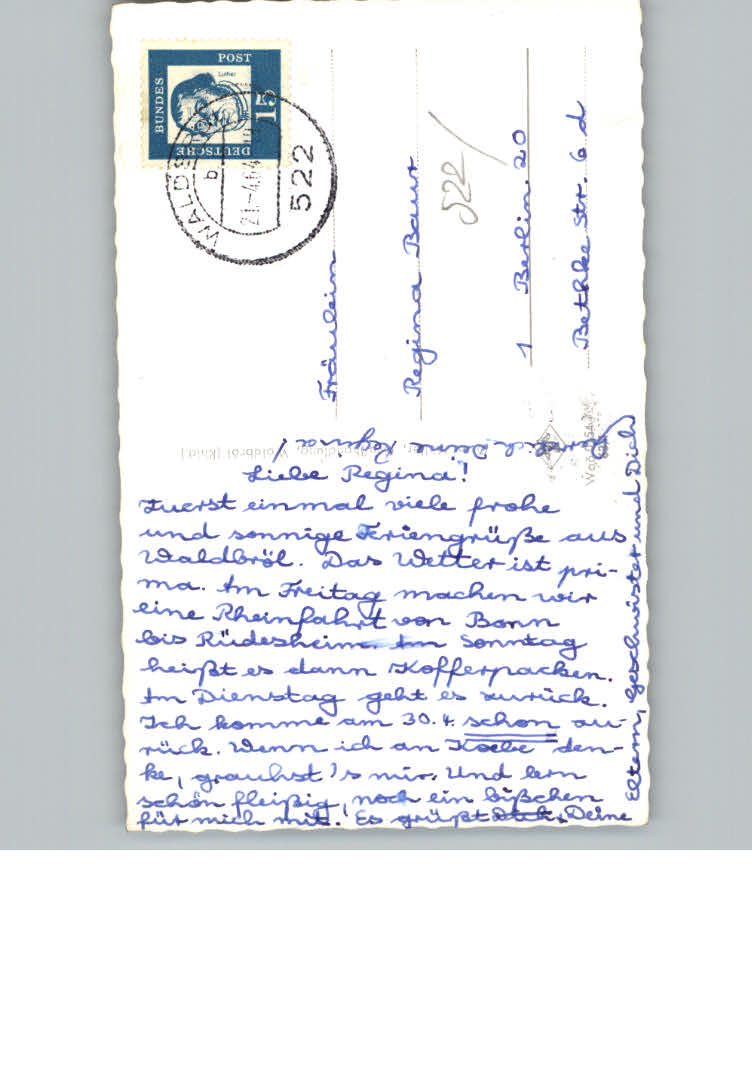 DEUTSCHE
BUNDES
POST
15
Luther
522
b
Fräulein
Regina Baur
522/
1 Berlin 20
Bethke Str. 6 d
Liebe Regina!
Zuerst einmal viele frohe
und sonnige Feriengrüße aus
Waldbröl. Das Wetter ist pri-
ma. Am Freitag machen wir
eine Rheinfahrt von Bonn
bis Rüdesheim. Am Sonntag
heißt es dann Kofferpacken.
Am Dienstag geht es zurück.
Ich komme am 30.4. schon zu-
rück. Wenn ich an Koebe den-
ke, grauhst's mir. Und lern
schön fleißig, noch ein bißchen
für mich mit! Es grüßt Deine
Eltern, Geschwister und Dich
herzlich Deine Regina!
Waldbröl (Rhld.)